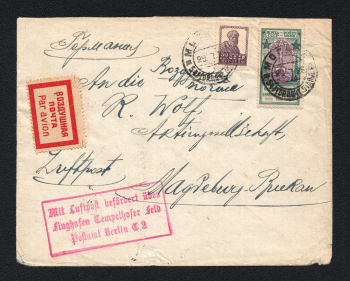 Германия
An die
Воздушная
почта
R. Wolf
Aktiengesellschaft,
Luftpost
Magdeburg-Buckau
ВОЗДУШНАЯ
ПОЧТА
Par avion
Mit Luftpost befördert über
Flughafen Tempelhofer Feld
Postamt Berlin C 2